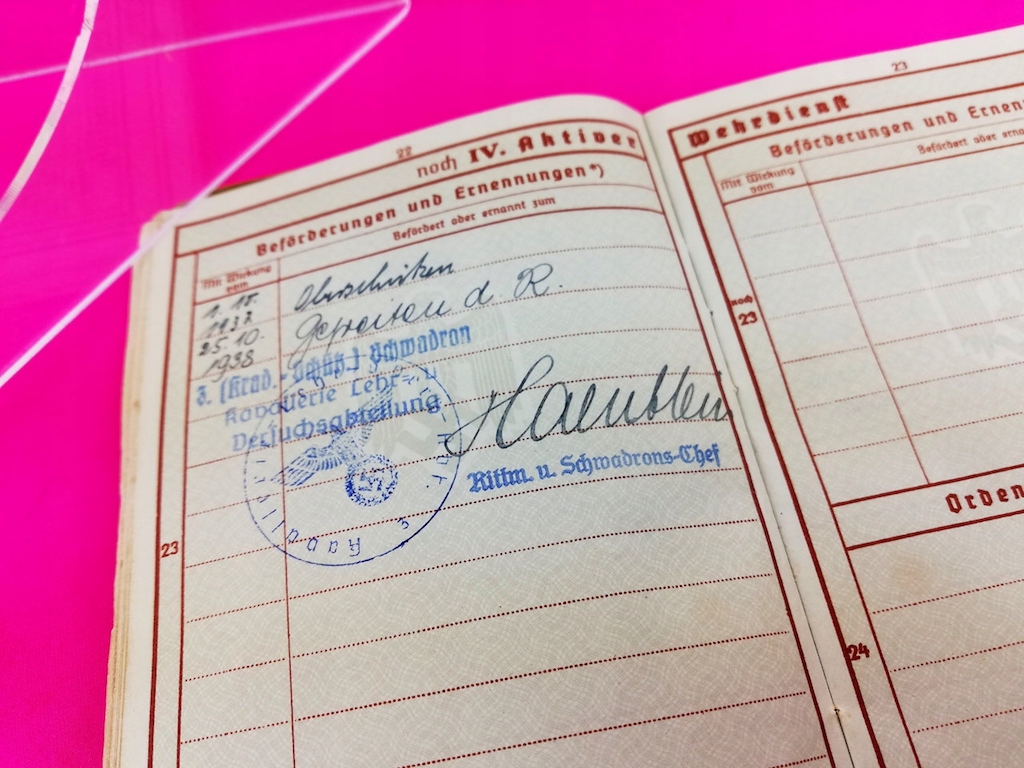 22
noch IV. Aktiver
Beförderungen und Ernennungen*)
Mit Wirkung vom
Befördert oder ernannt zum
1. 10. 1937
Oberschützen
25. 10. 1938
Gefreiten d R.
3. (Krad.-Schütz.) Schwadron
Kavallerie Lehr- u
Versuchsabteilung
Rittm. u. Schwadrons-Chef
23
23
Wehrdienst
Beförderungen und Ernen
Mit Wirkung vom
Befördert oder ernan
noch
23
Orden
24